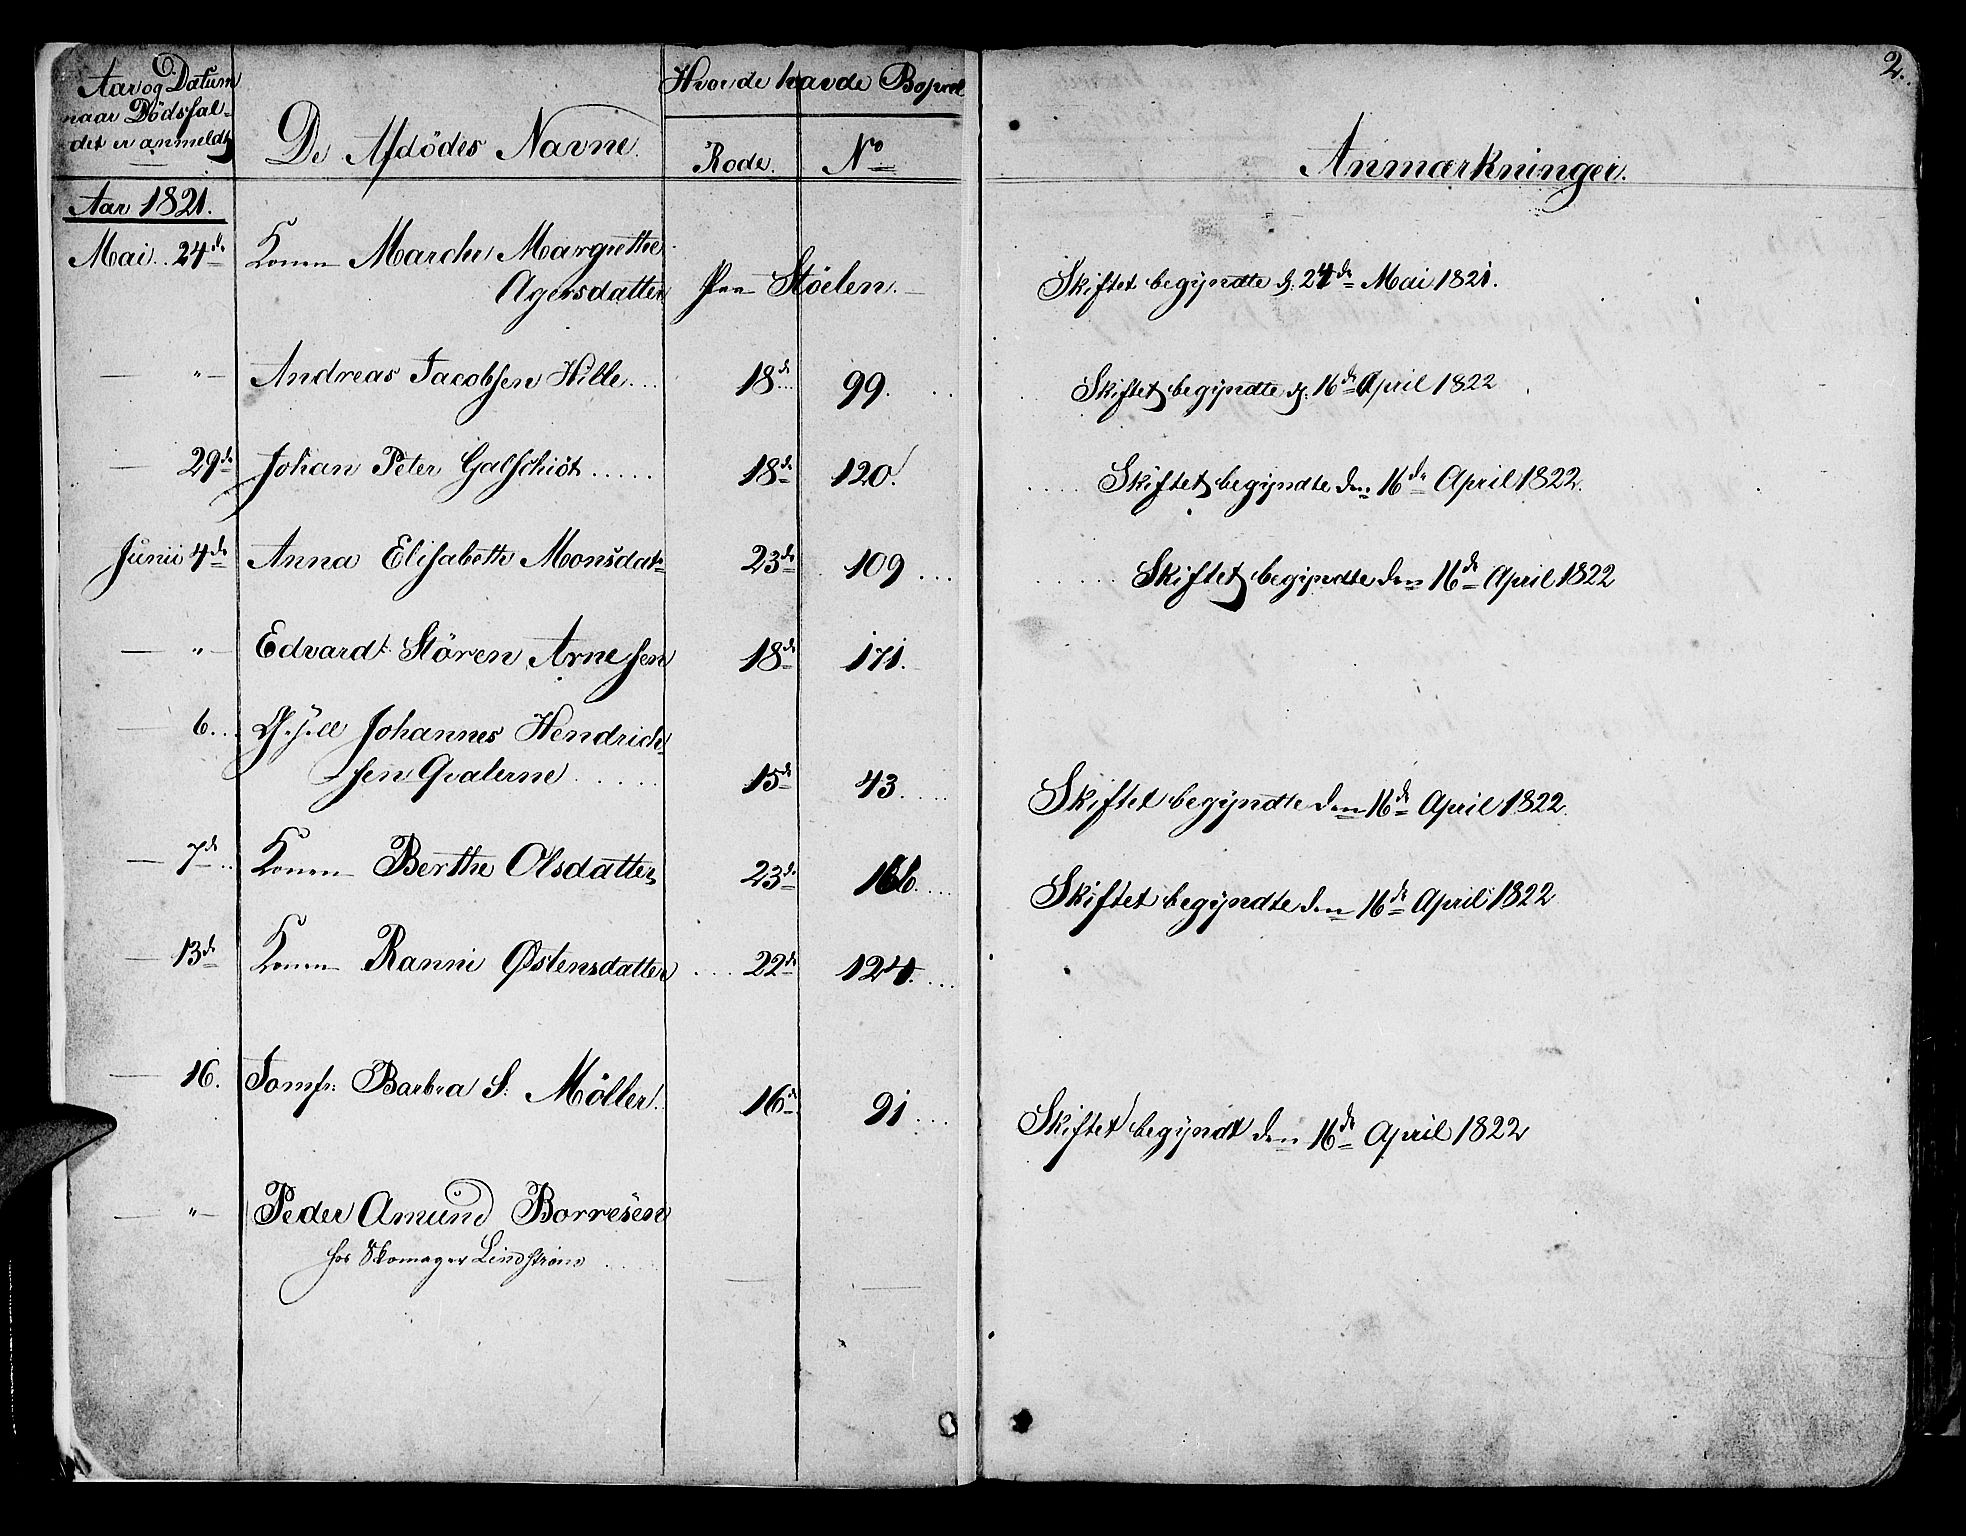 2.
Aar og Datum
naar Dödsfal-
det er anmeldt
De Afdödes Navne.
Hvor de havde Bopæl
Rode. No
Anmærkninger.
Aar 1821.
Mai. 24de Konen Marche Margrethe
Agersdatter Paa Stöelen. Skiftet begyndte d. 24de Mai 1821.
— " — Andreas Jacobsen Hille... 18de 99. Skiftet begyndte d. 16de April 1822
— 29de Johan Peter Galschiöt ...... 18de 120. Skiftet begyndte den 16de April 1822.
Junii 4de Anna Elisabeth Monsdat: 23de 109 ... Skiftet begyndte den 16de April 1822
— " — Edvardt Stören Arnesen 18de 171.
— 6... Johannes Hendrich-
sen Qvalerne ...... 15de 43.... Skiftet begyndte den 16de April 1822.
— 7de.. Konen Berthe Olsdatter 23de 166.... Skiftet begyndte den 16de April 1822
— 13de Konen Ranni Østensdatter .... 22de 124.... Skiftet
— 16. Jomfr: Barbra S: Möller. 16de 91.... Skiftet begyndt den 16de April 1822
— " — Peder Amund Borresen
hos Skomager Lindström ....